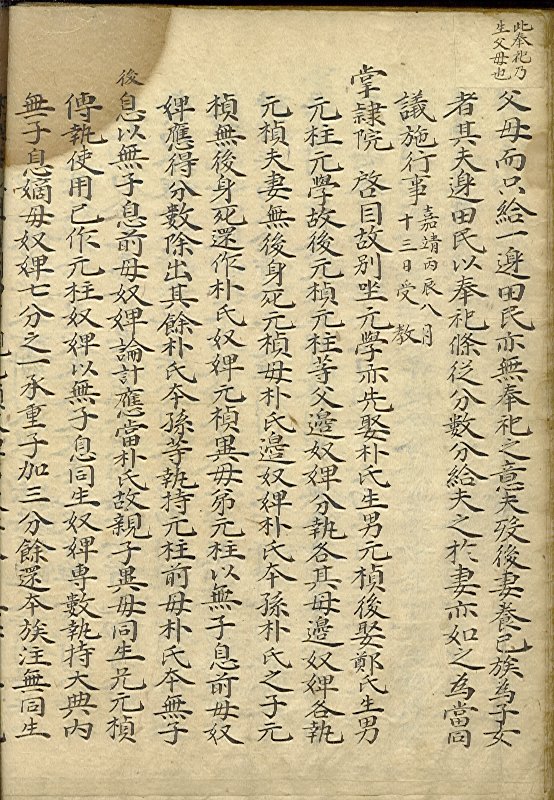 此奉祀乃
生父母也
父母而只給一邊田民亦無奉祀之意夫歿後妻養己族爲子女
者其夫邊田民以奉祀條從分數分給夫之於妻亦如之爲當同
議施行事
嘉靖丙辰八月
十三日受 教
掌隷院 啓目故別坐元學亦先娶朴氏生男元楨後娶鄭氏生男
元柱元學故後元楨元柱等父邊奴婢分執各其母邊奴婢各執
元楨夫妻無後身死元楨母朴氏邊奴婢朴氏夲孫朴氏之子元
楨無後身死還作朴氏奴婢元楨異母弟元柱以無子息前母奴
婢應得分數除出其餘朴氏夲孫等執持元柱前母朴氏夲無子
後
息以無子息前母奴婢論計應當朴氏故親子異母同生兄元楨
傳執使用已作元柱奴婢以無子息同生奴婢專數執持大典內
無子息嫡母奴婢七分之一承重子加三分餘還夲族注無同生